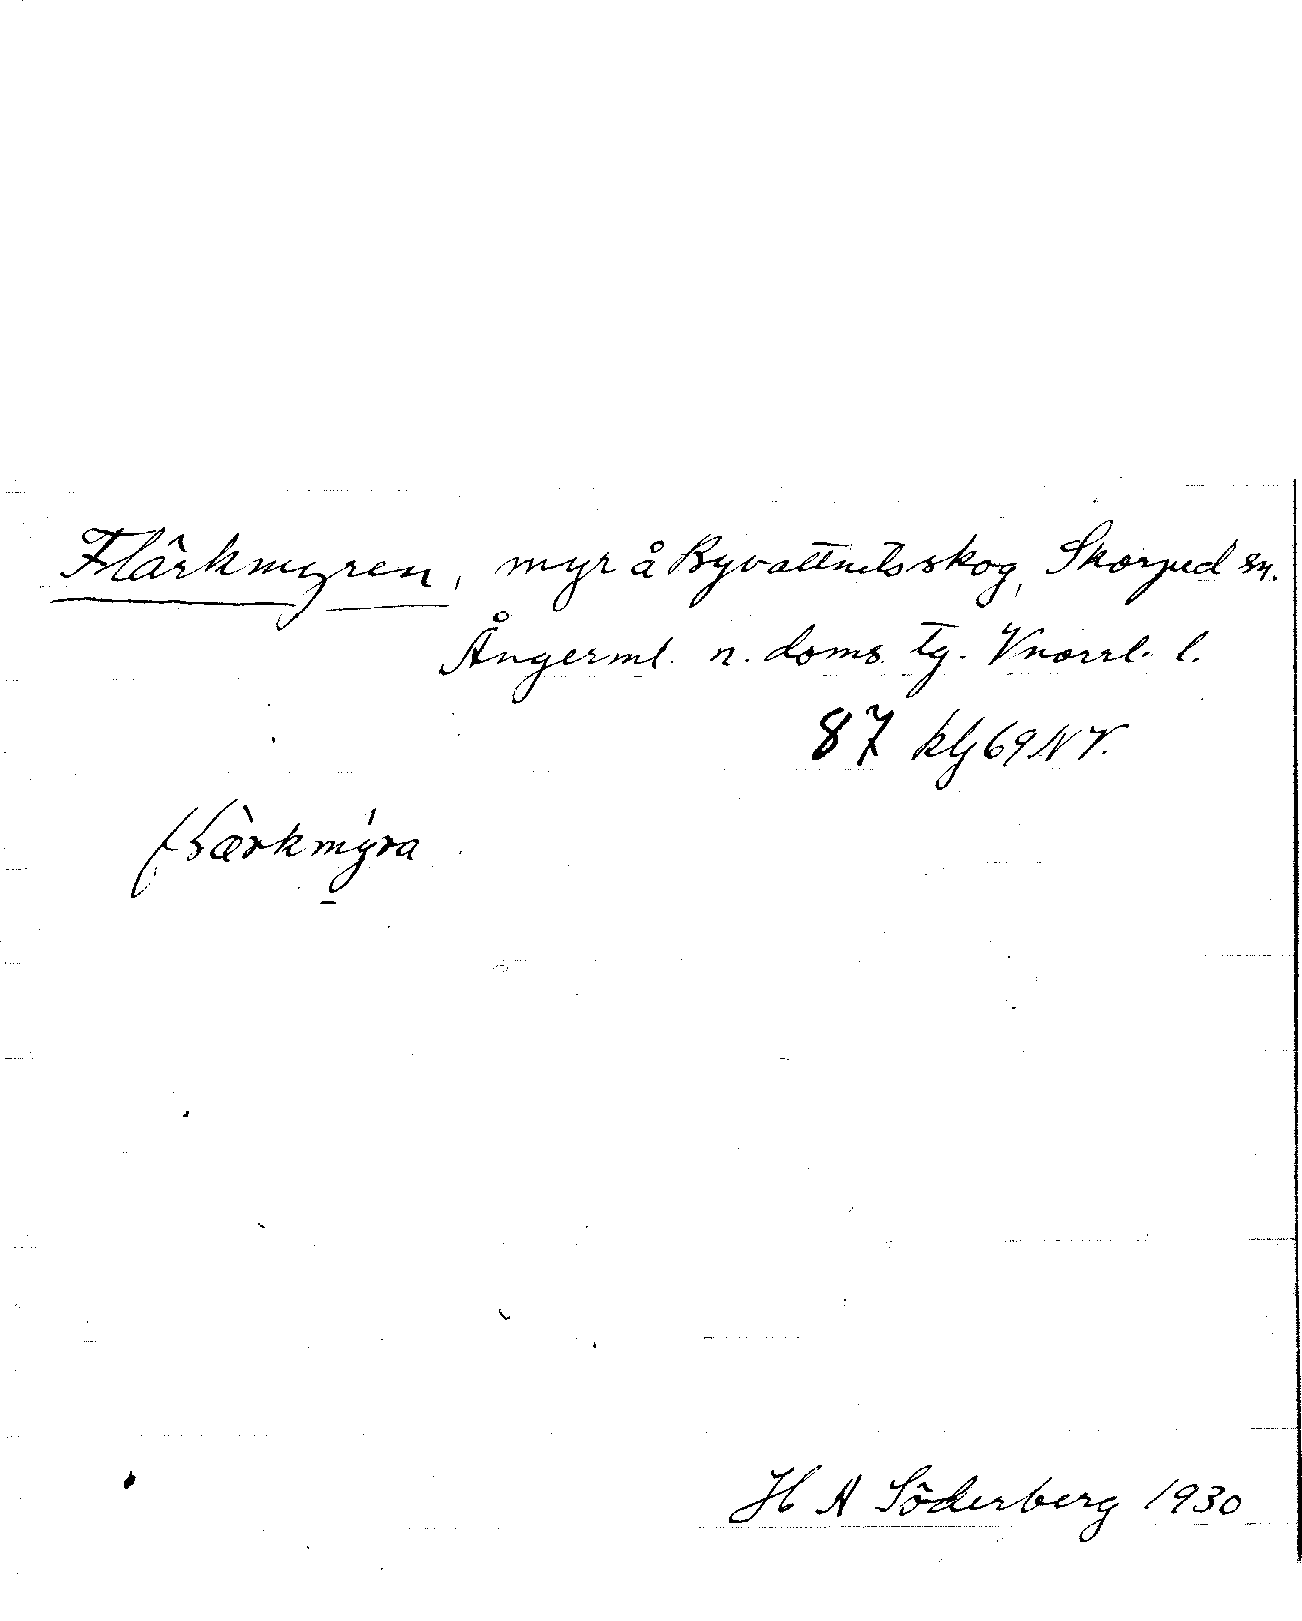 Flärkmyren, myr å Byvattnets skog, Skorped sn.
Ångerml. n. doms. tg. Vnorrl. l.
87 klj 69 NV.
H A Söderberg 1930